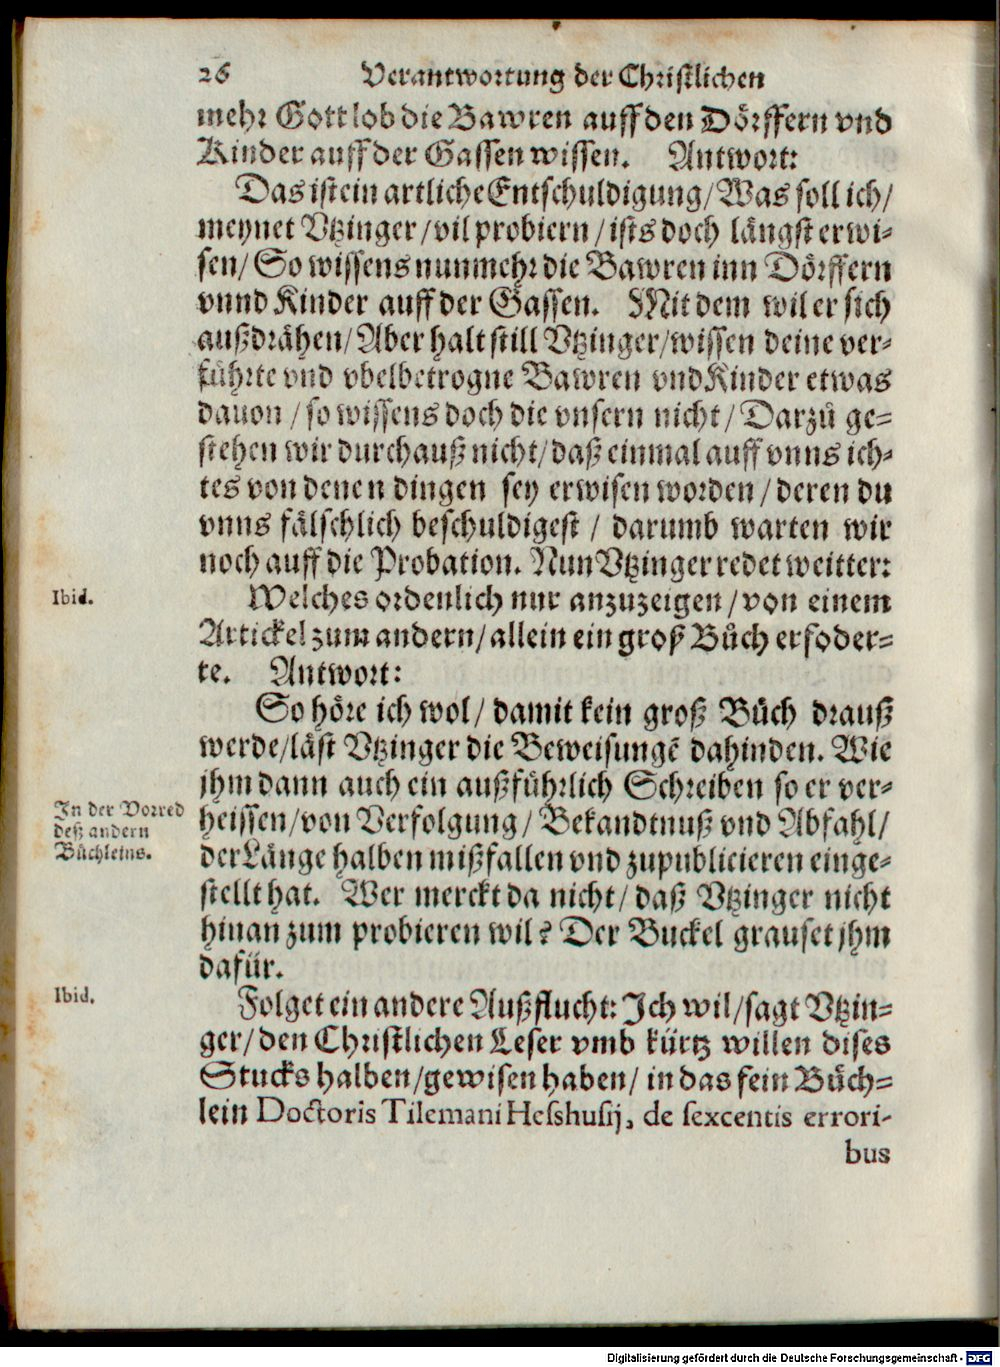 26 Verantwortung der Christlichen
mehr Gott lob die Bawren auff den Dörffern vnd
Kinder auff der Gassen wissen. Antwort:
Das ist ein artliche Entschuldigung/Was soll ich/
meynet Vtzinger/vil probiern/ists doch längst erwi-
sen/So wissens nunmehr die Bawren inn Dörffern
vnnd Kinder auff der Gassen. Mit dem wil er sich
außdrähen/Aber halt still Vtzinger/wissen deine ver-
führte vnd vbelbetrogne Bawren vnd Kinder etwas
dauon/so wissens doch die vnsern nicht/Darzů ge-
stehen wir durchauß nicht/daß einmal auff vnns ich-
tes von denen dingen sey erwisen worden/deren du
vnns fälschlich beschuldigest/darumb warten wir
noch auff die Probation. Nun Vtzinger redet weitter:
Ibid.
Welches ordenlich nur anzuzeigen/von einem
Artickel zum andern/allein ein groß Bůch erfoder-
te. Antwort:
So höre ich wol/damit kein groß Bůch drauß
werde/läst Vtzinger die Beweisungē dahinden. Wie
jhm dann auch ein außführlich Schreiben so er ver-
In der Vorred
deß andern
Büchleins.
heissen/von Verfolgung/Bekandtnuß vnd Abfahl/
der Länge halben mißfallen vnd zupublicieren einge-
stellt hat. Wer merckt da nicht/daß Vtzinger nicht
hinan zum probieren wil? Der Buckel grauset jhm
dafür.
Ibid.
Folget ein andere Außflucht: Ich wil/sagt Vtzin-
ger/den Christlichen Leser vmb kürtz willen dises
Stucks halben/gewisen haben/in das fein Büch-
lein Doctoris Tilemani Hesshusij, de sexcentis errori-
bus
Digitalisierung gefördert durch die Deutsche Forschungsgemeinschaft - DFG